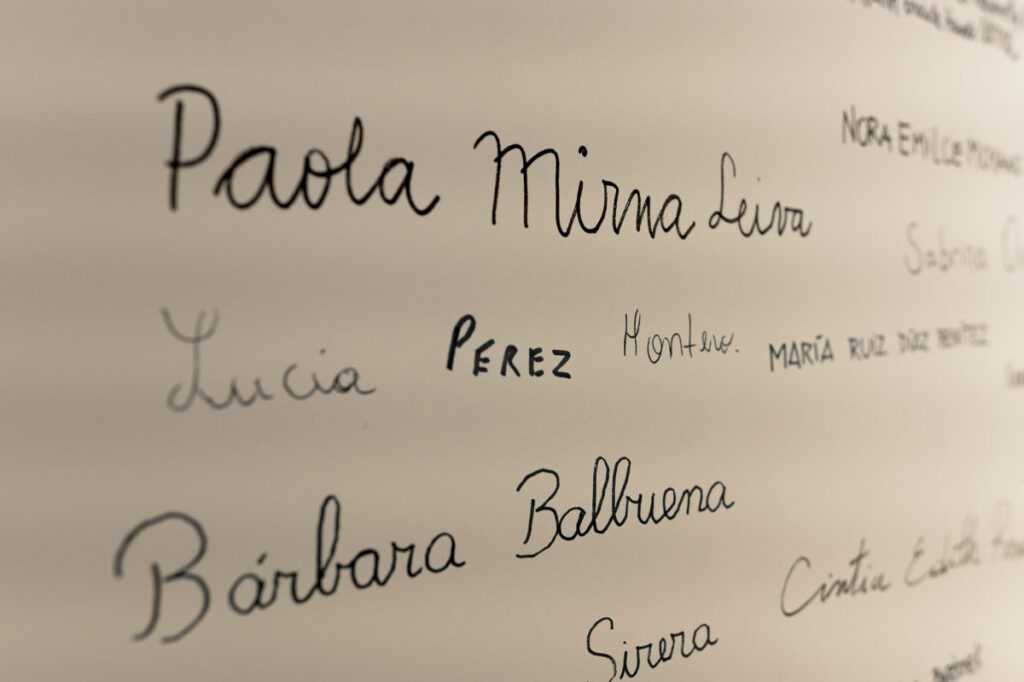 Paola Mirna Leiva
NORA EMILCE
Sabrina
Lucia PEREZ Montero. MARÍA RUIZ DÍAZ BENÍTEZ
Bárbara Balbuena
Cintia Edith
Sirera